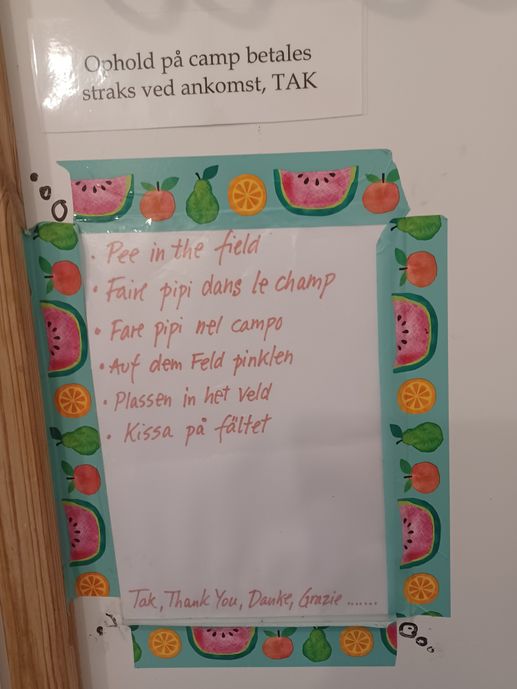 Ophold på camp betales
straks ved ankomst, TAK
• Pee in the field
• Faire pipi dans le champ
• Fare pipi nel campo
• Auf dem Feld pinklen
• Plassen in het veld
• Kissa på fältet
Tak, Thank You, Danke, Grazie .......